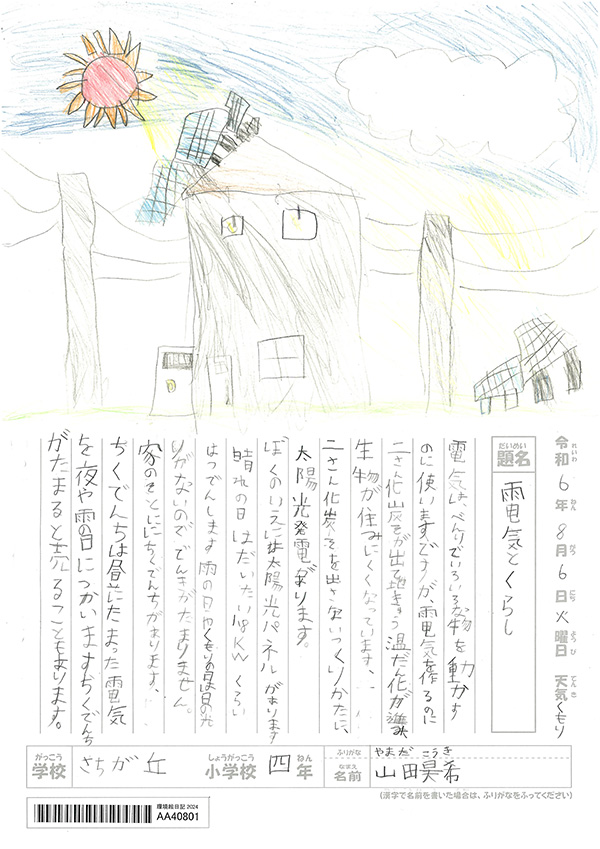 令和6年8月6日火曜日 天気くもり
れいわ ねん がつ にち ようび てんき
だいめい
題名
電気とくらし
電気は、べんりでいろいろな物を動かす
のに使いますですが、電気を作るのに
二さん化炭そが出て地きゅう温だん化が進み
生物が住みにくくなっています、
二さん化炭そを出さないつくりかたに、
太陽光発電があります。
ぼくのいえには太陽光パネルがあります
晴れの日はだいたい18KWくらい
はつでんします雨の日やくもりの日は日の光
りがないのででんきがたまりません。
家のそとにちくでんちがあります、
ちくでんちは昼にたまった電気
を夜や雨の日につかいますちくでんち
がたまると売ることもあります。
がっこう
学校
さちが丘
しょうがっこう
小学校
四
ねん
年
ふりがな
やまだ こうき
なまえ
名前
山田昊希
(漢字で名前を書いた場合は、ふりがなをふってください)
環境絵日記 2024
AA40801